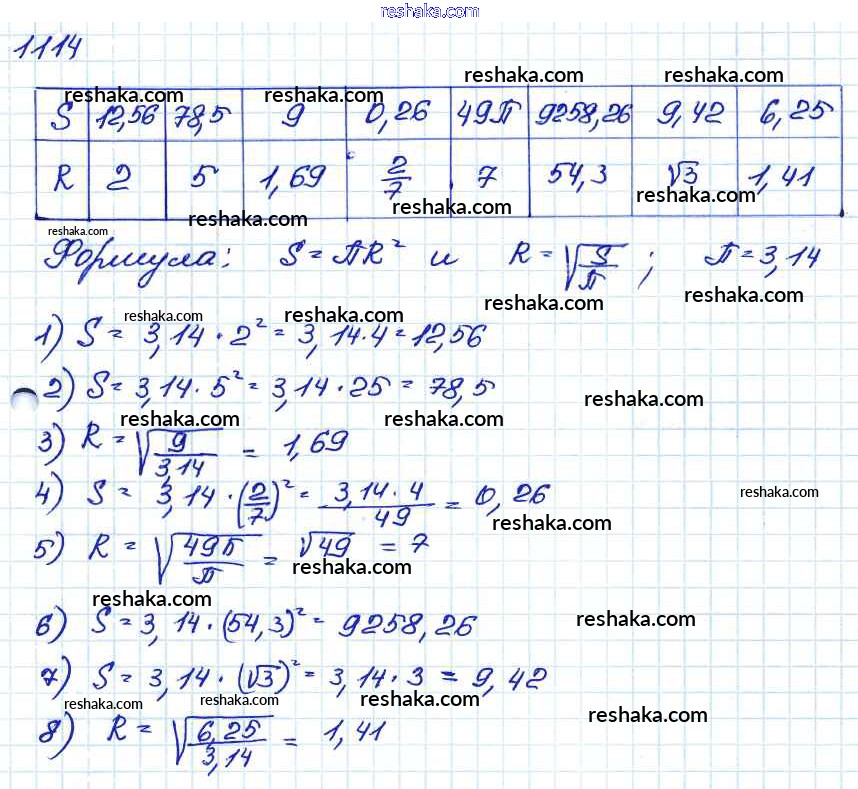 reshaka.com
1114
reshaka.com reshaka.com
reshaka.com reshaka.com
S 12,56 78,5 9 0,26 49П 9258,26 9,42 6,25
R 2 5 1,69 2/7 7 54,3 √3 1,41
reshaka.com reshaka.com reshaka.com
reshaka.com
Формула: S = ПR² и R = √(S/П); П = 3,14
reshaka.com reshaka.com reshaka.com reshaka.com
1) S = 3,14 · 2² = 3,14 · 4 = 12,56
2) S = 3,14 · 5² = 3,14 · 25 = 78,5
reshaka.com
reshaka.com reshaka.com
3) R = √(9/3,14) = 1,69
4) S = 3,14 · (2/7)² = (3,14 · 4)/49 = 0,26
reshaka.com
reshaka.com
5) R = √(49П/П) = √49 = 7
reshaka.com
reshaka.com
6) S = 3,14 · (54,3)² = 9258,26
reshaka.com
7) S = 3,14 · (√3)² = 3,14 · 3 = 9,42
reshaka.com reshaka.com reshaka.com
8) R = √(6,25/3,14) = 1,41